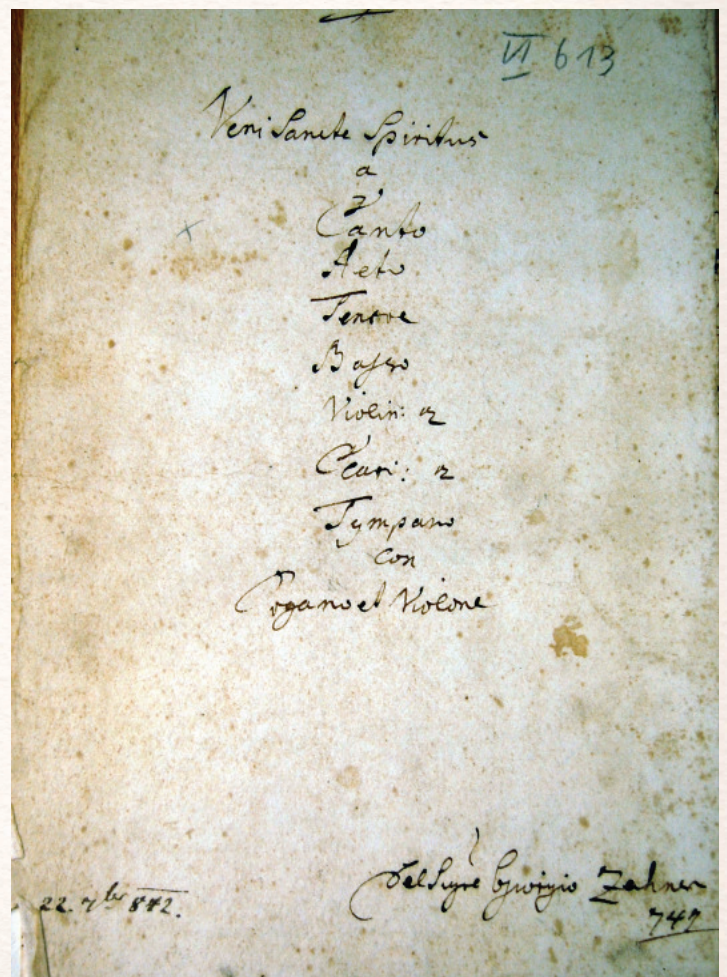 VI 613
Veni Sancte Spiritus
a
Canto
Alto
Tenore
Basso
Violin: 2
Clari: 2
Tympano
con
Organo et Violone
Del Sigre Giorgio Zahner
22. 7ber 842.
747